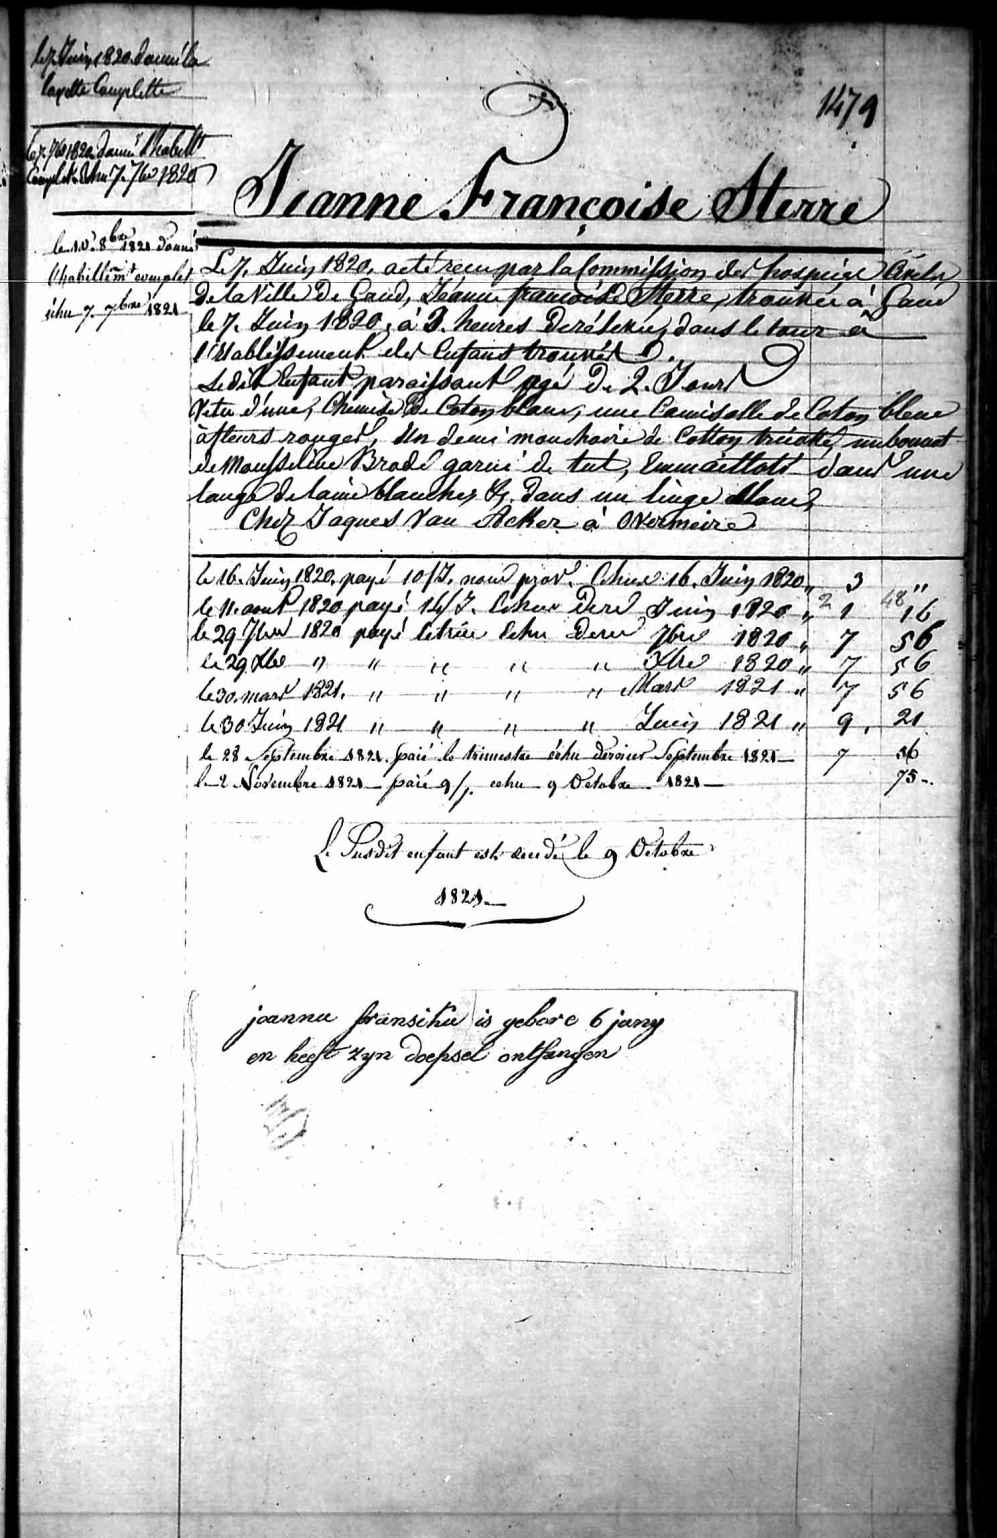 le 7. Juin 1820. donné la
layette Complette
le 7. 7bre 1820 donné l'habillt
Complet échu 7. 7bre 1820
le 10. 8bre 1821 donné
l'habillemt complet
échu 7. 7bre 1821
1479
Jeanne Françoise Sterre
Le 7. Juin 1820, a été reçu par la Commission des hospices Civils,
de la Ville de Gand, Jeanne françoise Sterre, trouvée à Gand
le 7. Juin 1820, à 3. heures de rélevée, dans le tour à
l'établissement des Enfans trouvés.
Ledit Enfant paraissant agé de 2. Jours
Vetu d'une, Chemise De Coton blanc, une Camisolle de Coton bleue
à fleurs rouges, Un demi mouchoire de Cotton tricotté, un bonnet
de Mousseline Brodé garni de tul, Emmaillotté dans une
lange de laine blanche, & dans un linge blanc,
Chez Jaques Van Acker à Overmeire
le 16. Juin 1820. payé 10/J. nour prov. Echus 16. Juin 1820 " 3 "
le 11. aout 1820 payé 14/J. Echus Derr Juin 1820 " 2 1 48 16
le 29 7bre 1820 payé letrée Echu Derr 7bre 1820 " 7 56
le 29 Xbre " " " " " Xbre 1820 " 7 56
le 30. mars 1821. " " " " Mars 1821 " 7 56
le 30 Juin 1821 " " " " Juin 1821 " 9. 21
le 28 Septembre 1821. paié le trimestre échu dernier Septembre 1821 7 56
le 2 Novembre 1821 paié 9/J. echu 9 Octobre 1821 75
Le Susdit enfant est decedé le 9 Octobre
1821.
joanna fransisca is gebore 6 juny
en heeft zyn doepsel ontfangen